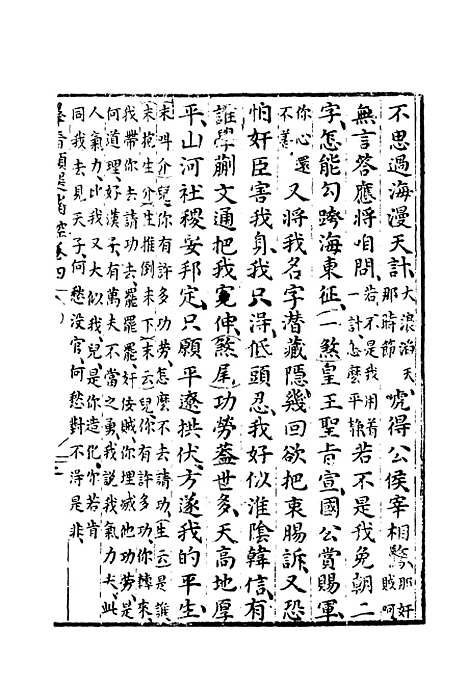 不思過海漫天計大浪滔天那時節若不是我用着一計怎麽平𨋢唬得公侯宰相驚那奸賊呵
無言答應將咱問若不是我免朝二
字怎能勾跨海東征一煞皇王聖旨宣國公賞賜軍
你心還不善又將我名字潜藏隱幾回欲把衷腸訴又恐
怕奸臣害我身我只得低頭忍我好似淮陰韓信有
誰學蒯文通把我寃伸煞尾功劳蓋世多天高地厚
平山河社稷安邦定只願平遼拱伏方遂我的平生
末呌介兒你有許多功劳怎麽不去請功生云是誰
末抱生介生推倒末下末云兒你有許多功你轉來
我帶你去請功去罷罷罷奸侫賊你埋滅他功劳是
何道理好漢子有萬夫不當之勇我說我氣力大此
人氣力比我又大似我兒是你造化你若肯
同我去見天子何愁没官何愁對不得是非